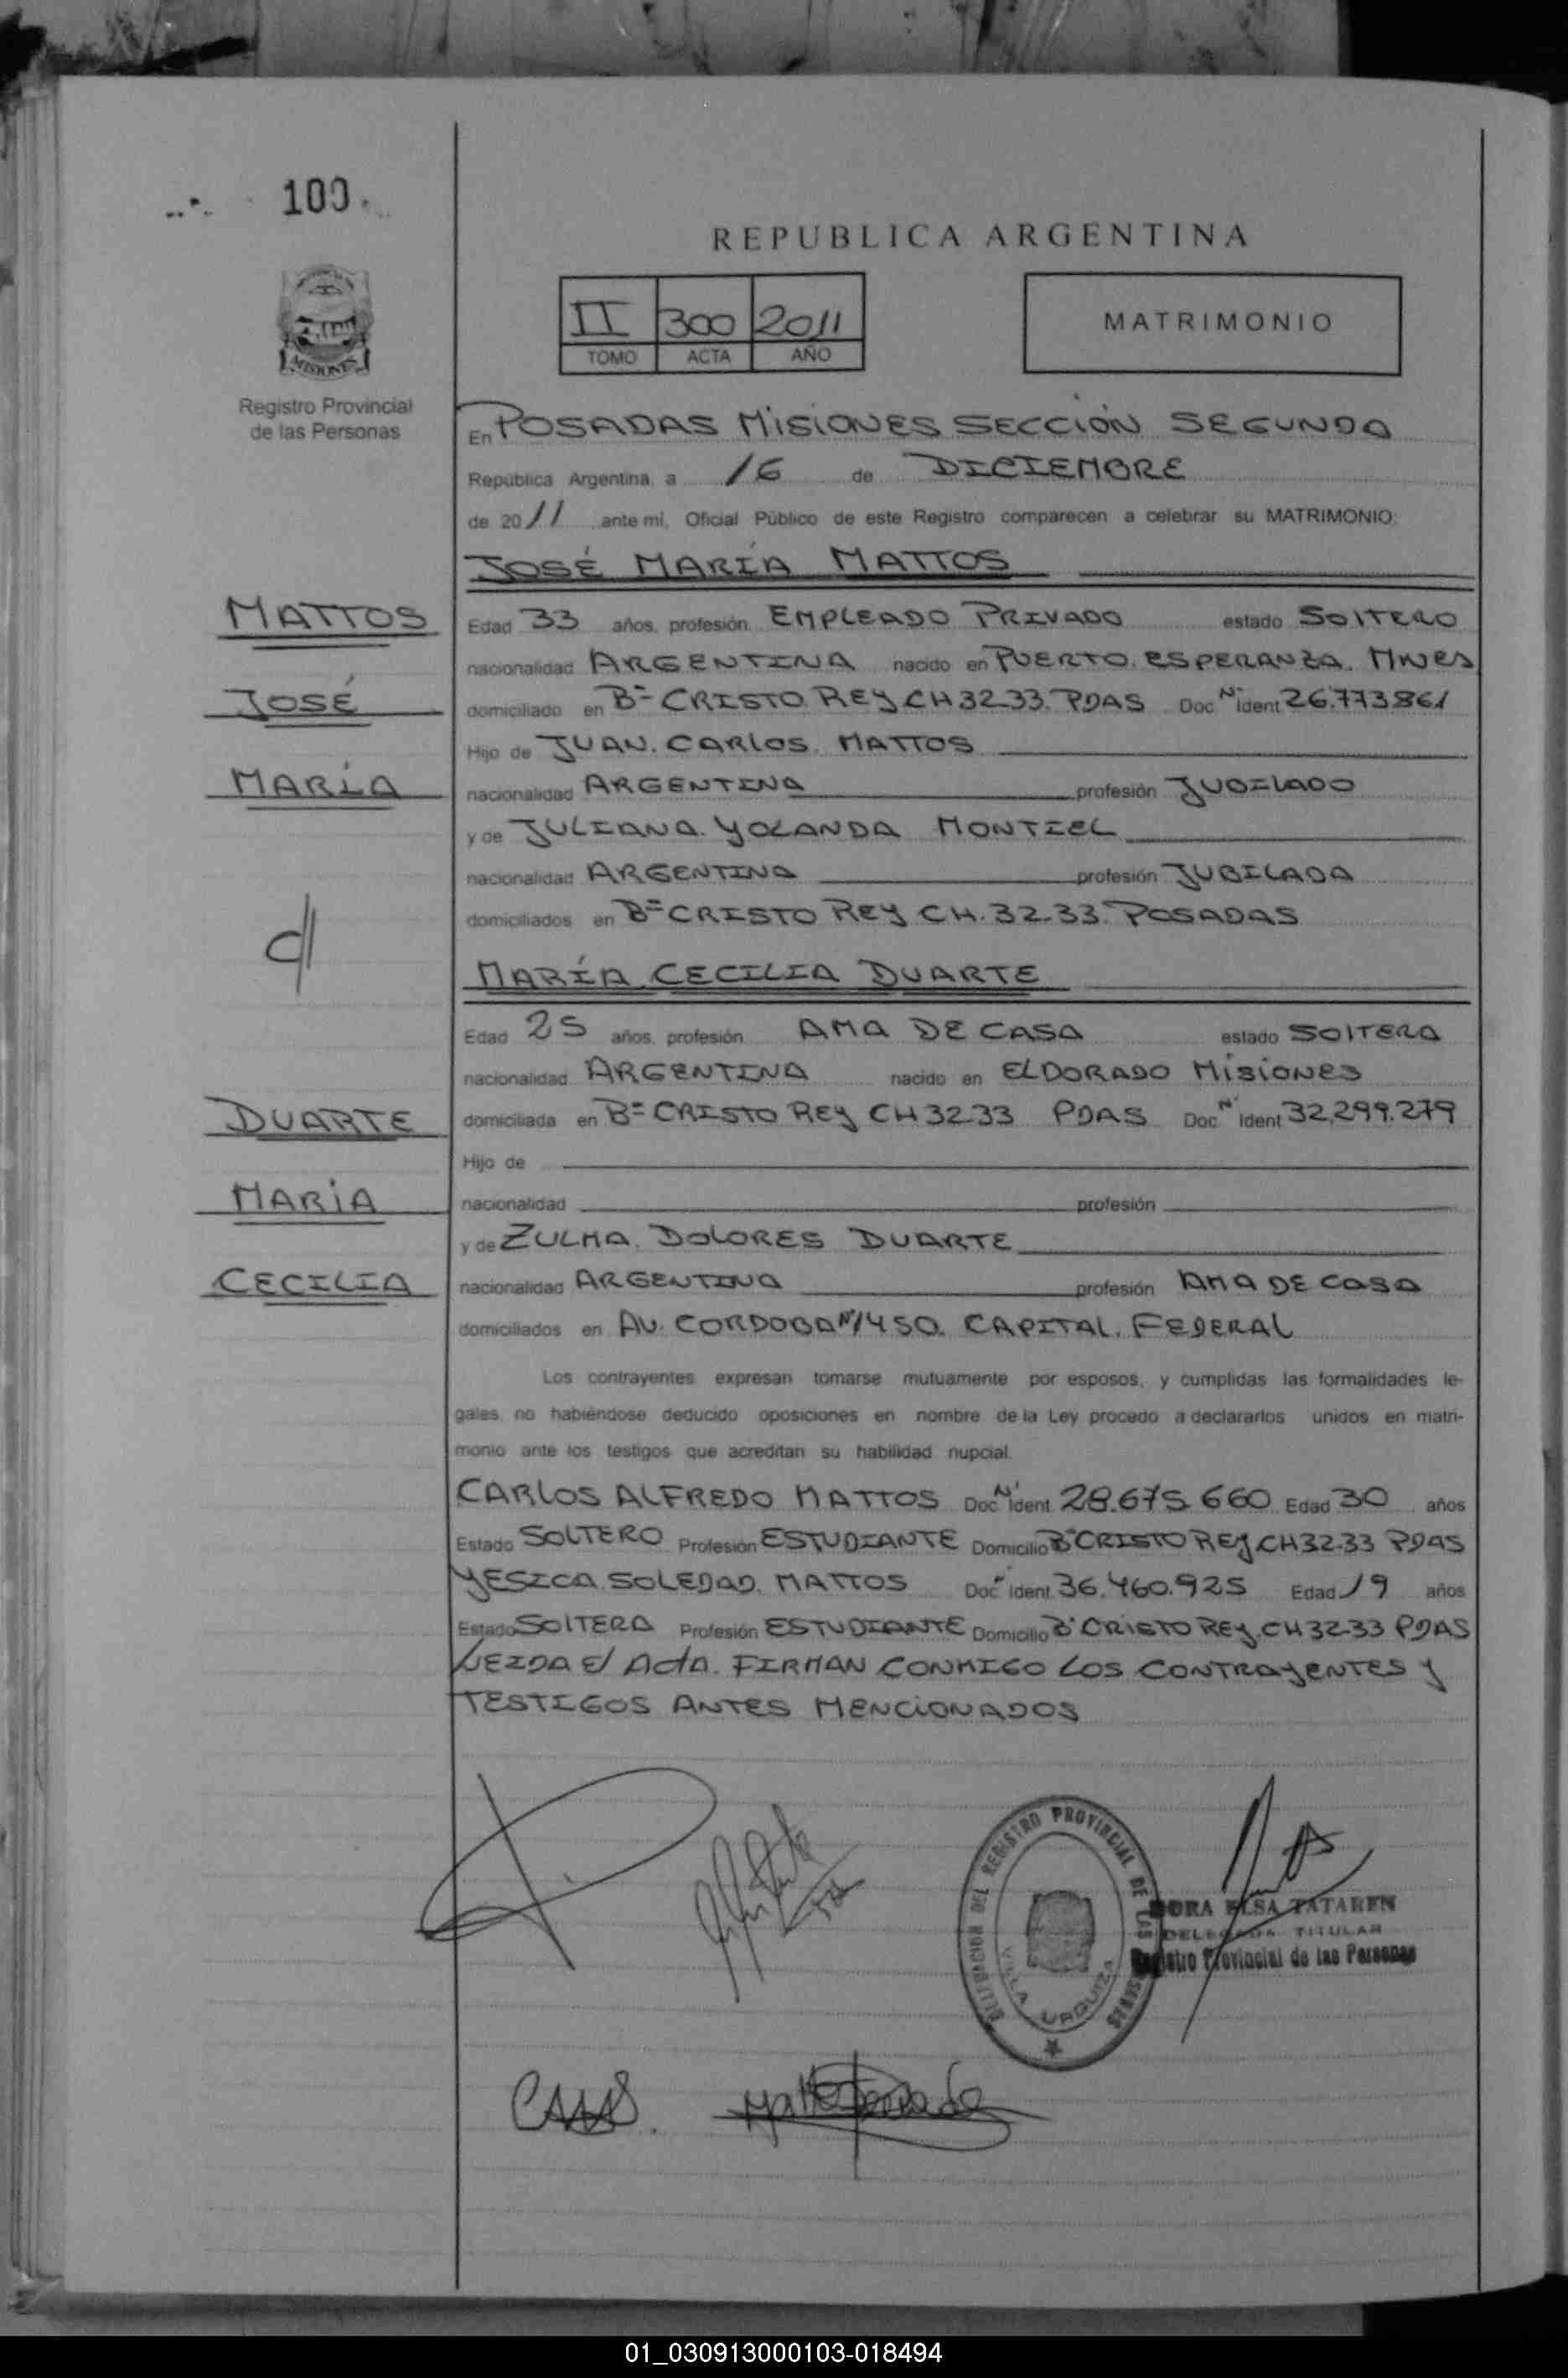 100
REPUBLICA ARGENTINA
II 300 2011
TOMO ACTA AÑO
MATRIMONIO
MISIONES
Registro Provincial
de las Personas
En POSADAS MISIONES SECCIÓN SEGUNDA
República Argentina, a 16 de DICIEMBRE
de 2011 ante mí, Oficial Público de este Registro comparecen a celebrar su MATRIMONIO:
JOSÉ MARÍA MATTOS
MATTOS
Edad 33 años, profesión EMPLEADO PRIVADO estado SOLTERO
nacionalidad ARGENTINA nacido en PUERTO ESPERANZA. Mnes
JOSÉ
domiciliado en Bº CRISTO REY CH 32-33. PDAS Doc. Nº Ident 26.773.861
Hijo de JUAN. CARLOS. MATTOS
MARÍA
nacionalidad ARGENTINA profesión JUBILADO
y de JULIANA YOLANDA MONTIEL
nacionalidad ARGENTINA profesión JUBILADA
domiciliados en Bº CRISTO REY CH. 32-33. POSADAS
MARÍA CECILIA DUARTE
Edad 25 años, profesión AMA DE CASA estado SOLTERA
nacionalidad ARGENTINA nacido en ELDORADO MISIONES
DUARTE
domiciliada en Bº CRISTO REY CH 32-33 PDAS Doc. Nº Ident 32.299.279
Hijo de
MARÍA
nacionalidad profesión
y de ZULMA. DOLORES DUARTE
CECILIA
nacionalidad ARGENTINA profesión AMA DE CASA
domiciliados en AV. CORDOBA Nº 1450. CAPITAL. FEDERAL
Los contrayentes expresan tomarse mutuamente por esposos, y cumplidas las formalidades le-
gales, no habiéndose deducido oposiciones en nombre de la Ley procedo a declararlos unidos en matri-
monio ante los testigos que acreditan su habilidad nupcial.
CARLOS ALFREDO MATTOS Doc. Nº Ident. 28.675.660 Edad 30 años
Estado SOLTERO Profesión ESTUDIANTE Domicilio Bº CRISTO REY CH 32-33 PDAS
YESICA SOLEDAD. MATTOS Doc. Nº Ident. 36.460.925 Edad 19 años
Estado SOLTERA Profesión ESTUDIANTE Domicilio Bº CRISTO REY. CH 32-33 PDAS
LEIDA el ActA. FIRMAN CONMIGO LOS CONTRAYENTES y
TESTIGOS ANTES MENCIONADOS
DELEGACION DEL REGISTRO PROVINCIAL DE LAS PERSONAS
VILLA URQUIZA
DORA ELSA TATAREN
DELEGADA TITULAR
Registro Provincial de las Personas
01_030913000103-018494